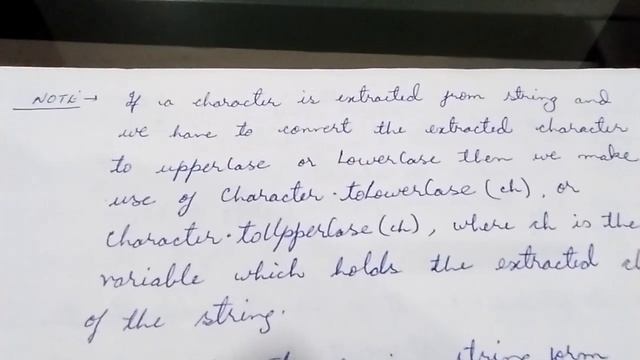 NOTE:→ If a character is extracted from string and
we have to convert the extracted character
to uppercase or Lowercase then we make
use of Character.toLowerCase (ch), or
Character.toUpperCase (ch), where ch is the
variable which holds the extracted
of the string.
string form